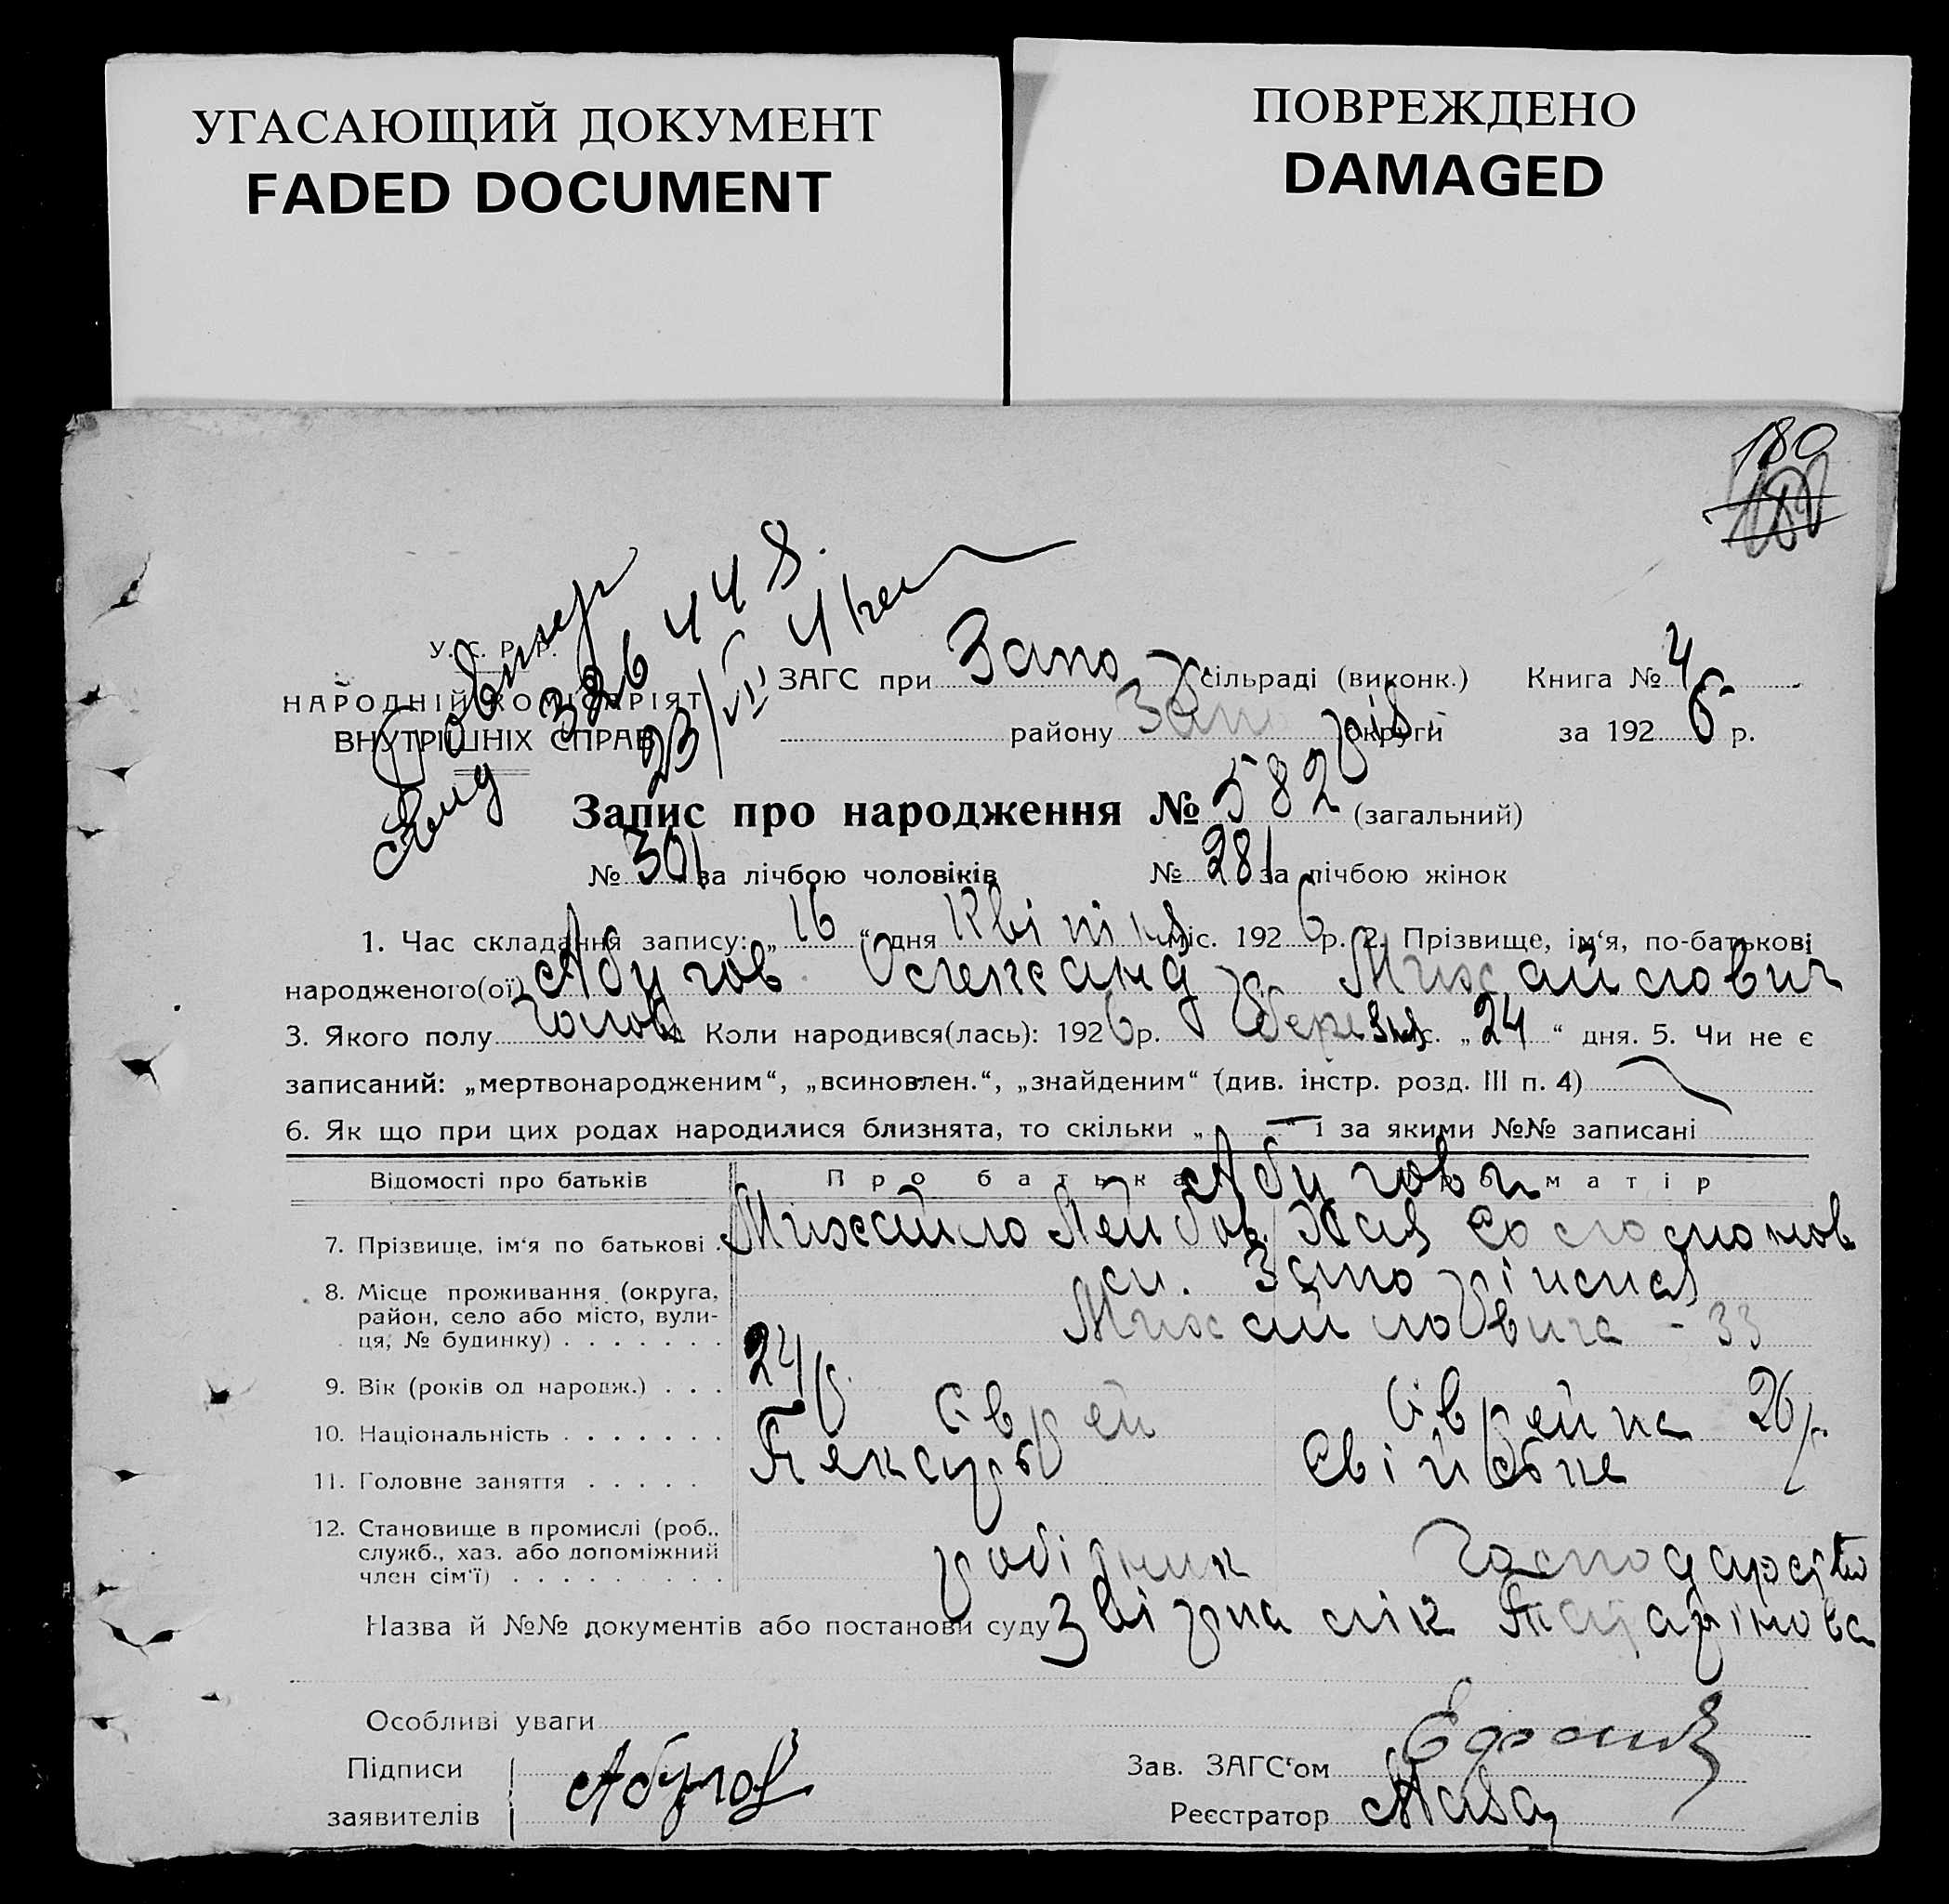 УГАСАЮЩИЙ ДОКУМЕНТ
FADED DOCUMENT
ПОВРЕЖДЕНО
DAMAGED
180
326448.
23/VII
У. С. Р. Р.
НАРОДНІЙ КОМІСАРІЯТ
ВНУТРІШНІХ СПРАВ
ЗАГС при Запор сільраді (виконк.) Книга № 4
району Запоріз округи за 1926 р.
Запис про народження № 582 (загальний)
№ 301 за лічбою чоловіків № 281 за лічбою жінок
1. Час складання запису: „16“ дня Квітня міс. 1926 р. 2. Прізвище, ім‘я, по-батькові
народженого(ої) Абугов Олександр Михайлович
3. Якого полу чолов 4. Коли народився(лась): 1926 р. березня міс. „24“ дня. 5. Чи не є
записаний: „мертвонародженим“, „всиновлен.“, „знайденим“ (див. інстр. розд. III п. 4)
6. Як що при цих родах народилися близнята, то скільки „—“ і за якими №№ записані
Відомості про батьків Про батька Про матір
Абугови
7. Прізвище, ім‘я по батькові Михайло Лейбов Хая Соломонов
8. Місце проживання (округа, м. Запоріжжя
район, село або місто, вули-
ця, № будинку) Михайловича - 33
9. Вік (років од народж.) 24 р. 26 р.
10. Національність Єврей Єврейка
11. Головне заняття Пекарь Свійське
12. Становище в промислі (роб.,
служб., хаз. або допоміжний робітник господарство
член сім‘ї)
Назва й №№ документів або постанови суду З
Особливі уваги
Підписи Зав. ЗАГС‘ом
заявителів Абугов Реєстратор